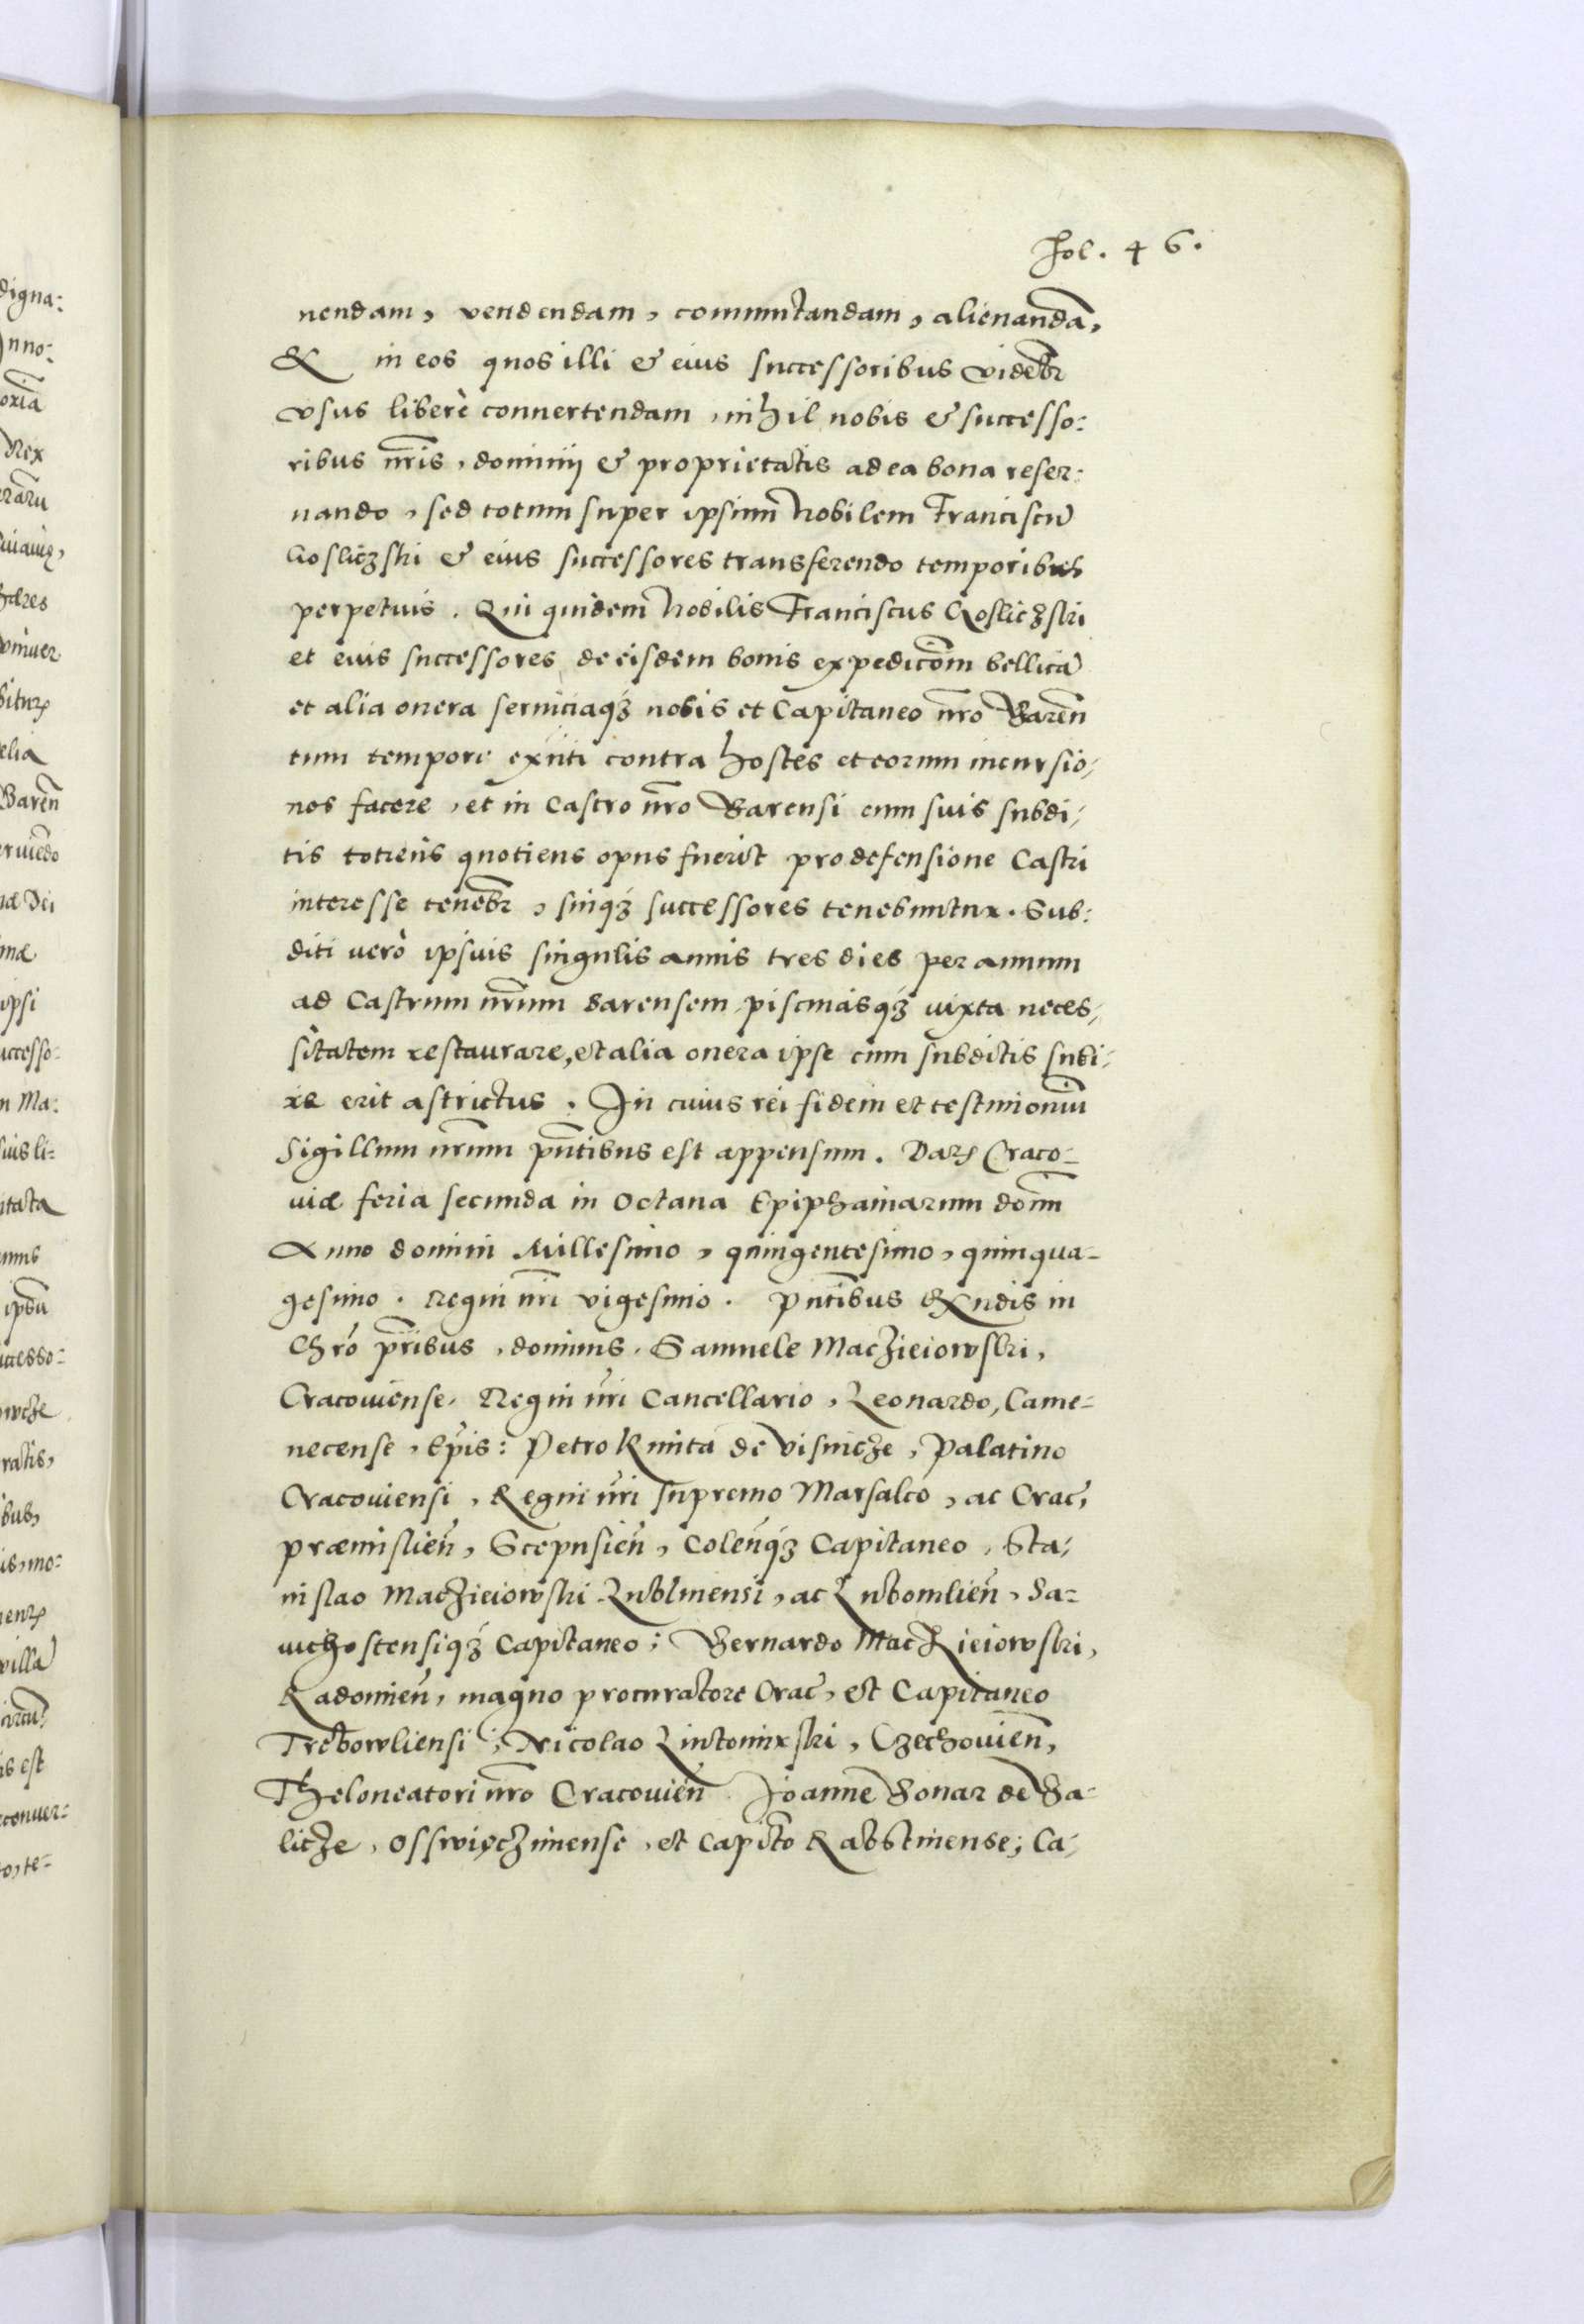 Fol. 46.
nendam, vendendam, commutandam, alienandā,
& in eos quos illi & eius successoribus videbr̄
vsus liberè conuertendam, nihil nobis & successo:
ribus nr̄is, dominij & proprietatis ad ea bona reser:
uando, sed totum super ipsum Nobilem Franciscū
Gosliczski & eius successores transferendo temporibus
perpetuis. Qui quidem Nobilis Franciscus Gosliczski
et eius successores de eisdem bonis expedicōm bellicā
et alia onera seruiciaqʒ nobis et Capitaneo nr̄o Bareñ
tum tempore exn̄ti contra hostes et eorum incursio,
nes facere, et in Castro nr̄o Barensi cum suis subdi,
tis totiens quotiens opus fuerit pro defensione Castri
interesse tenebr̄, suiqʒ successores tenebuntur. Sub:
diti verò ipsius singulis annis tres dies per annum
ad Castrum nr̄um Barensem piscinasqʒ iuxta neces,
sitatem restaurare, et alia onera ipse cum subditis subi,
re erit astrictus. In cuius rei fidem et testimoniū
Sigillum nr̄um pn̄tibus est appensum. Datꝭ Craco-
uiæ feria secunda in Octaua Epiphaniarum dom̄
Anno domini Millesimo, quingentesimo, quinqua-
gesimo. Regni nr̄i vigesimo. Pn̄tibus Rx̄ndis in
Chr̄o pr̄ibus, dominis, Samuele Maczieiowski,
Cracouiense, Regni nr̄i Cancellario, Leonardo, Came-
necense, Ep̄is: Petro Kmita de Visnicze, Palatino
Cracouiensi, Regni nr̄i supremo Marsalco, ac Crac̄,
præmislień, Scepusień, Coleñqʒ Capitaneo, Sta,
nislao Maczieiowski Lublinensi, ac Lubomlień, Sa-
uichostensiqʒ Capitaneo; Bernardo Maczieiowski,
Radomień, magno procuratore Crac̄, et Capitaneo
Trebowliensi; Nicolao Lutomirski, Czechouień,
Theloneatori nr̄o Cracouień Joanne Bonar de Ba-
licze, Osswięczimense, et Capitō Rabstinense; Ca,